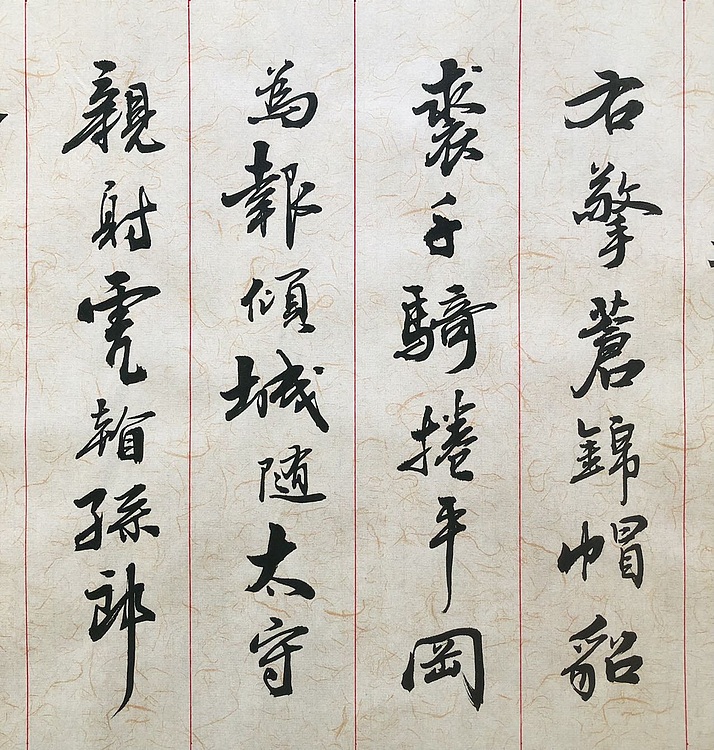 右擎蒼錦帽貂
裘千騎捲平岡
為報傾城随太守
親射虎看孫郎